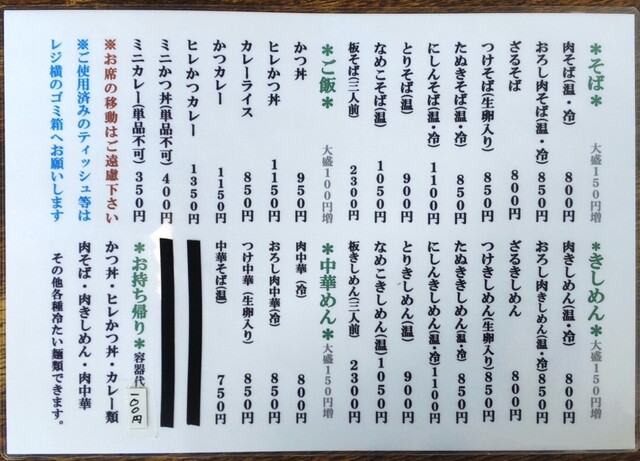 ＊そば＊ 大盛150円増
肉そば(温・冷) 800円
おろし肉そば(温・冷) 850円
ざるそば 800円
つけそば(生卵入り) 850円
たぬきそば(温・冷) 850円
にしんそば(温・冷) 1100円
とりそば(温) 900円
なめこそば(温) 1050円
板そば(三人前) 2300円
＊ご飯＊ 大盛100円増
かつ丼 950円
ヒレかつ丼 1150円
カレーライス 850円
かつカレー 1150円
ヒレかつカレー 1350円
ミニかつ丼(単品不可) 400円
ミニカレー(単品不可) 350円
※お席の移動はご遠慮下さい
※ご使用済みのティッシュ等は
レジ横のゴミ箱へお願いします
＊きしめん＊ 大盛150円増
肉きしめん(温・冷) 800円
おろし肉きしめん(温・冷) 850円
ざるきしめん 800円
つけきしめん(生卵入り) 850円
たぬききしめん(温・冷) 850円
にしんきしめん(温・冷) 1100円
とりきしめん(温) 900円
なめこきしめん(温) 1050円
板きしめん(三人前) 2300円
＊中華めん＊ 大盛150円増
肉中華(冷) 800円
おろし肉中華(冷) 850円
つけ中華(生卵入り) 850円
中華そば(温) 750円
＊お持ち帰り＊ 容器代 100円
かつ丼・ヒレかつ丼・カレー類
肉そば・肉きしめん・肉中華
その他各種冷たい麺類できます。